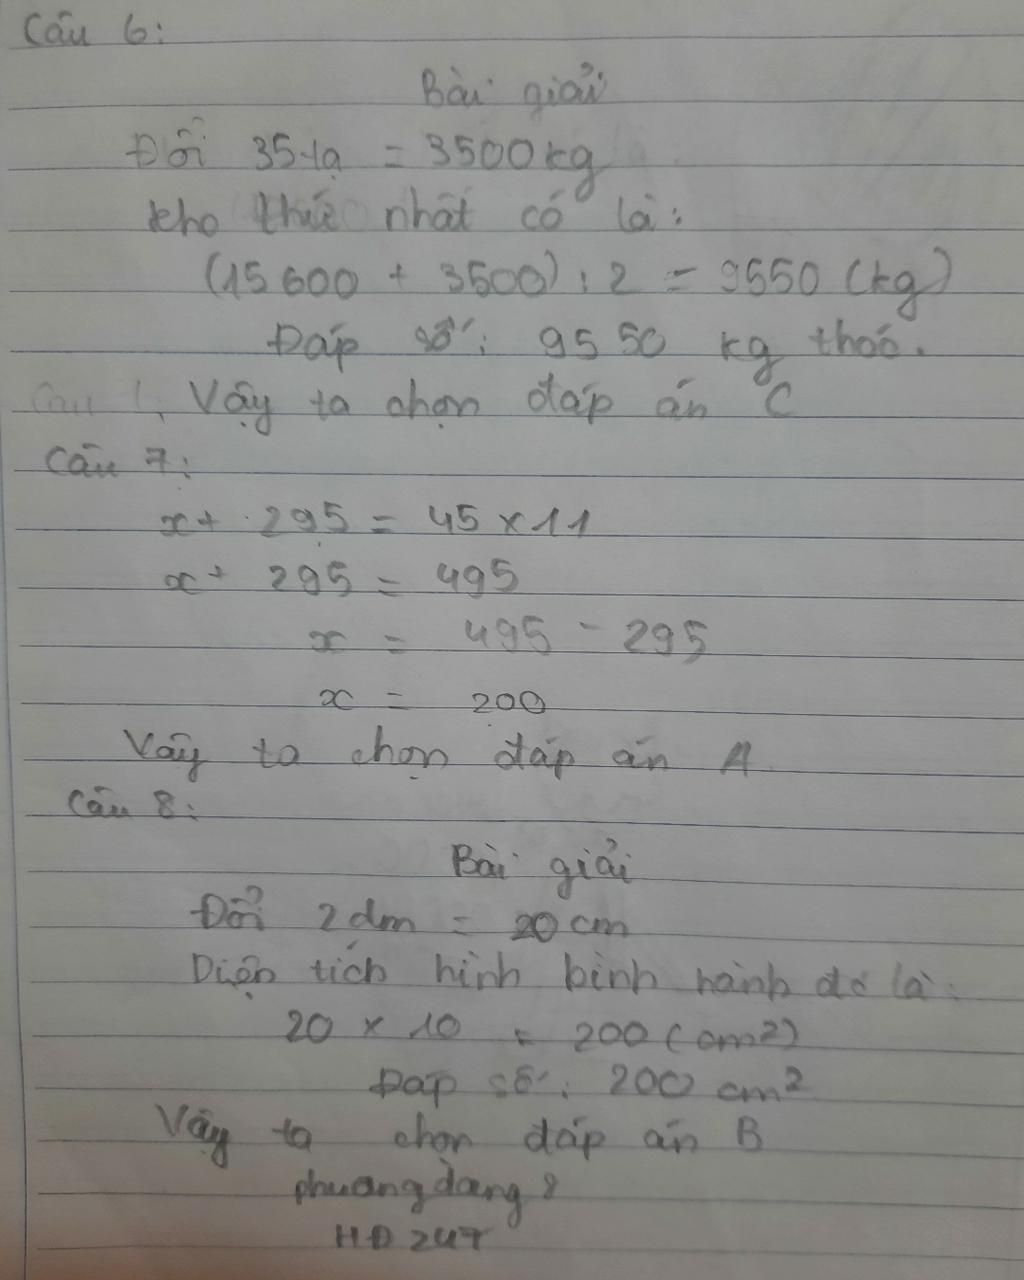 Câu 6:
Bài giải
Đổi 35 tạ = 3500 kg
kho thứ nhất có là:
(15 600 + 3500) : 2 = 9550 (kg)
Đáp số: 9550 kg thóc.
Câu 1, Vậy ta chọn đáp án C
Câu 7:
x + 295 = 45 x 11
x + 295 = 495
x = 495 - 295
x = 200
Vậy ta chọn đáp án A
Câu 8:
Bài giải
Đổi 2 dm = 20 cm
Diện tích hình bình hành đó là:
20 x 10 = 200 (cm²)
Đáp số: 200 cm²
Vậy ta chọn đáp án B
phuongdang8
HĐ 247